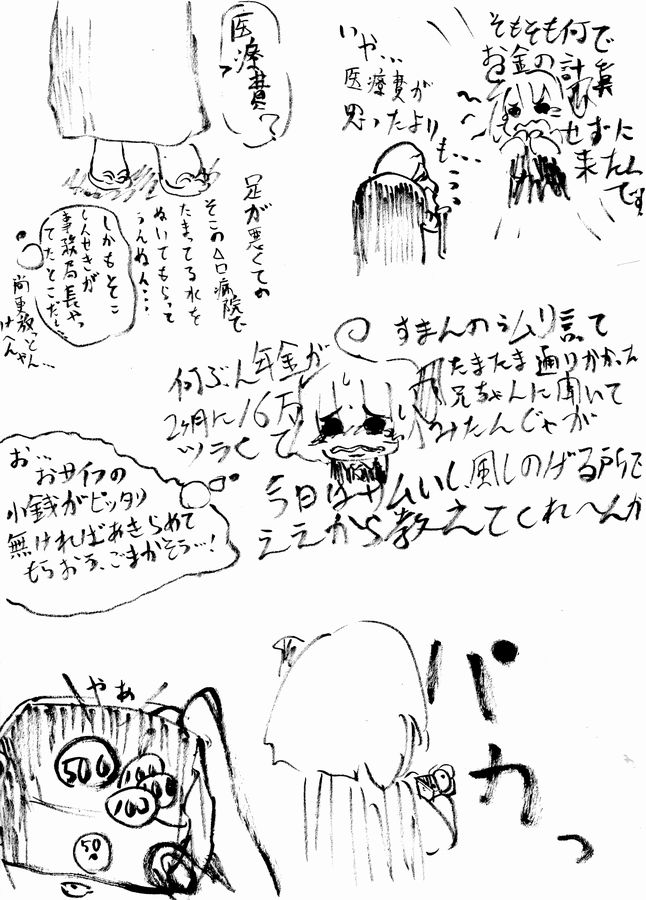 そもそも何で
お金の計算
せずに
来たんです
いや、、、
医療費が
思ったより
も…
医療費っ?
足が悪くての
そこの△□病院で
たまってる水を
ぬいてもらって
うんぬん・・・
しかもそこ
しんせきが
事務局長やっ
てたとこだし…
尚更放っとん…
けへんやん…
すまんのうムリ言て
たまたま通りかかった
兄ちゃんに聞いて
みたんじゃが
何ぶん年金が
2ヶ月に16万
ツラくて
今日はサムいし、風しのげる所で
ええから教えてくれへんか
お…
おサイフの
小銭がピッタリ
無ければあきらめて
もらおう、ごまかそう…!
パカっ
やあ
500
100
100
100
50